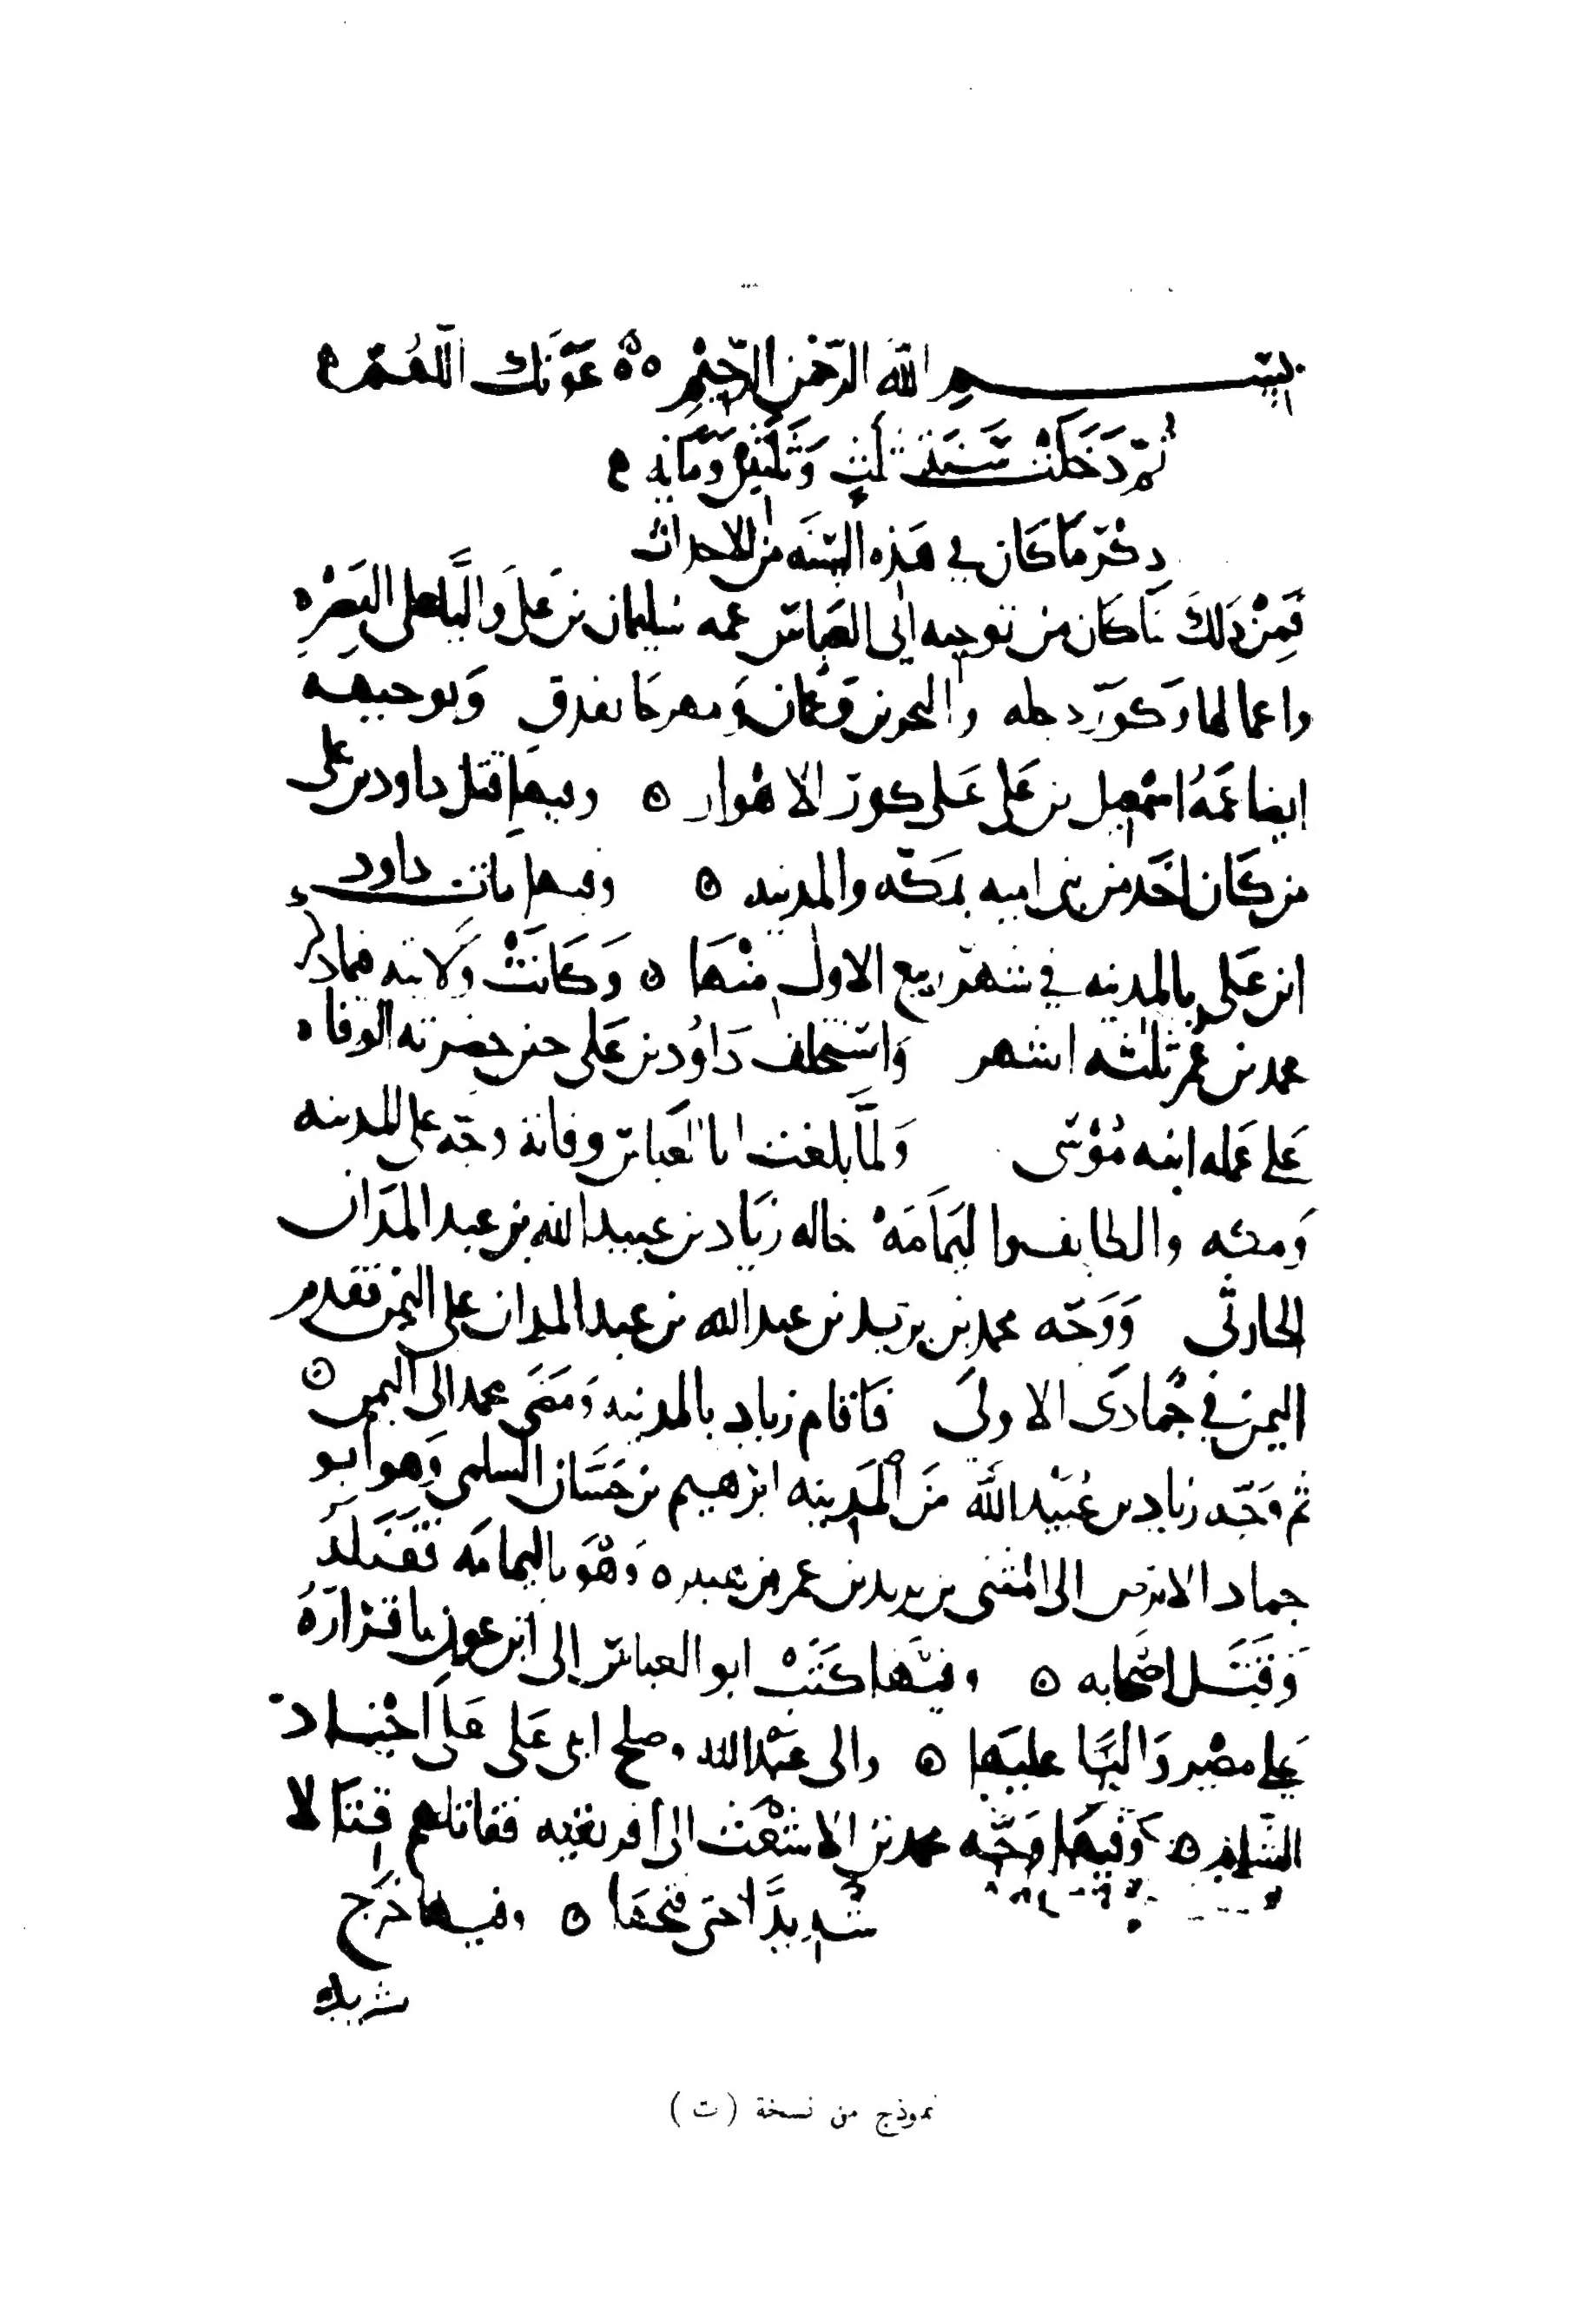 بسم الله الرحمن الرحيم ٥٥٥ عونك اللهم
ثم دخلت سنة ثلث وثلثين ومايه
ذكر ما كان في هذه السنه من الاحداث
فمن ذلك ما كان من توجيه ابى العباس عمه سليمان بن على واليا على البصره
واعمالها وكور دجله والبحرين وعمان ومهرجانقذق وتوجيهه
ايضا عمه اسمعيل بن على على كور الاهواز ٥ وفيها قتل داود بن على
من كان اخذ من بنى اميه بمكه والمدينه ٥ وفيها مات داود
ابن على بالمدينه في شهر ربيع الاول منها ٥ وكانت ولايته فيما ذكر
محمد بن عمر ثلثه اشهر واستخلف داود بن على حين حضرته الوفاه
على عمله ابنه موسى ولما بلغت ابا العباس وفاته وجه على المدينه
ومكه والطايف واليمامه خاله زياد بن عبيد الله بن عبد المدان
الحارثى ووجه محمد بن يزيد بن عبد الله بن عبد المدان على اليمن فقدم
اليمن في جمادى الاولى فاقام زياد بالمدينه ومضى محمد الى اليمن ٥
ثم وجه زياد بن عبيد الله من المدينه ابرهيم بن حسان السلمى وهو ابو
حماد الابرص الى المثنى بن يزيد بن عمر بن هبيره وهو باليمامه فقتله
وقتل اصحابه ٥ وفيها كتب ابو العباس الى ابى عون باقراره
على مصر واليا عليها ٥ والى عبد الله وصلح ابنى على على اجناد
الشام ٥ وفيها وجه محمد بن الاشعث الى افريقيه فقاتلهم قتالا
شديدا حتى فتحها ٥ وفيها خرج
شريك
نموذج من نسخة (ت)